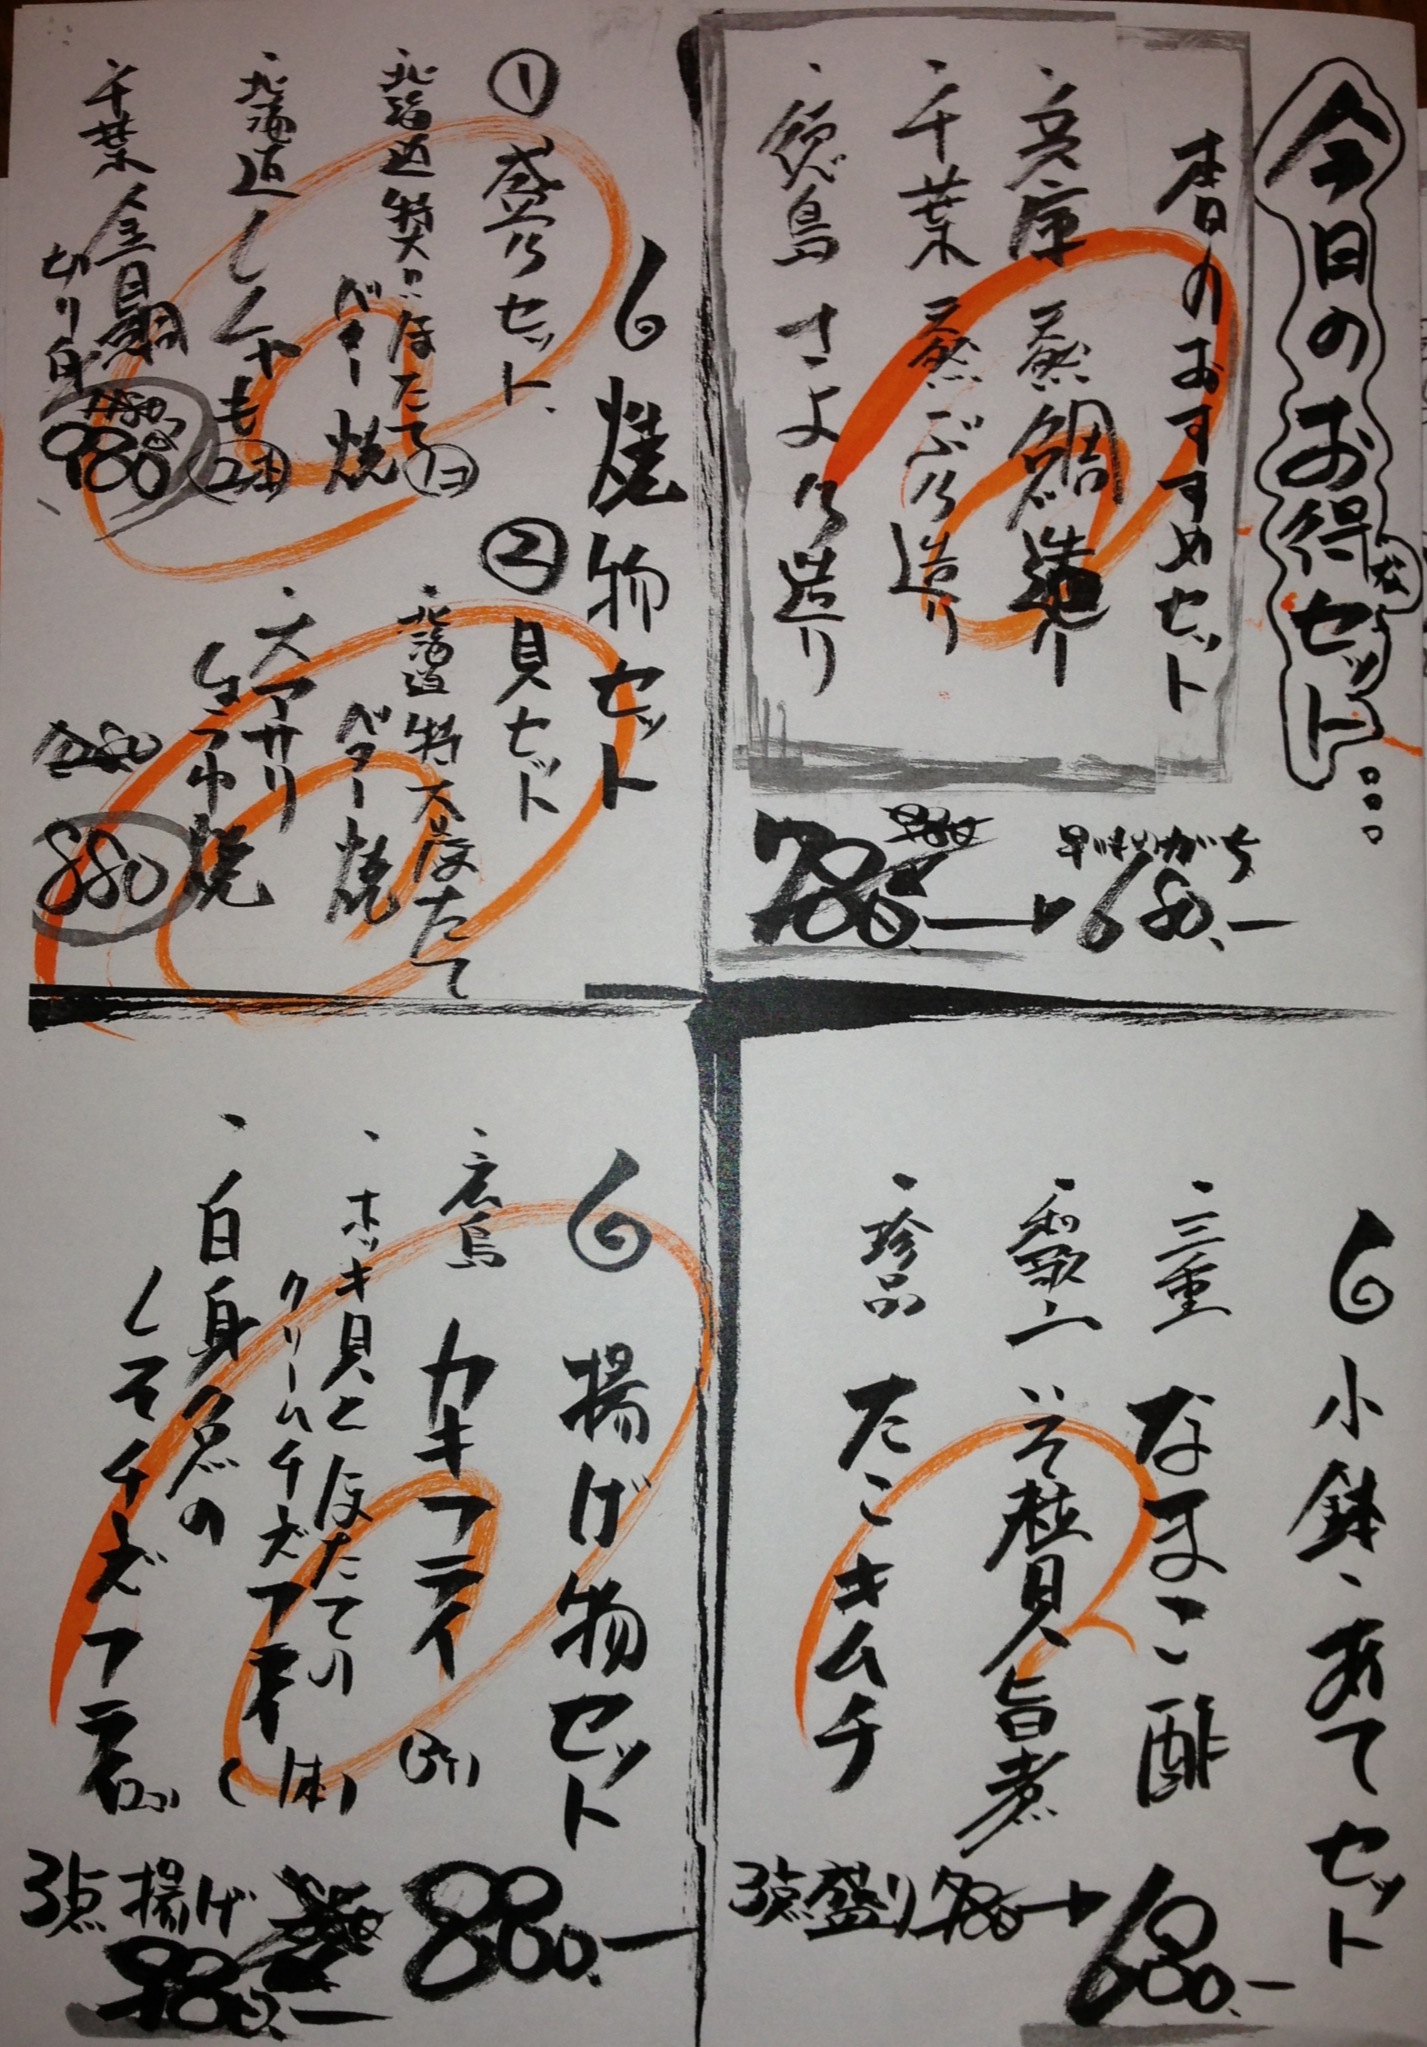 今日のお得なセット…
春のおすすめセット
・兵庫 天然鯛造り
・千葉 天然ぶり造り
・徳島 さより造り
早いものがち
680.-
焼物セット
① 盛りセット
・北海道 特大ほたて
バター焼
・北海道ししゃも 2本
・千葉 金目鯛
切り身
980
② 貝セット
・北海道 特大ほたて
バター焼
・大アサリ
焼
880
小鉢、あてセット
・三重 なまこ酢
・和歌山 いそ粒貝旨煮
・珍品 たこキムチ
3点盛り 780→
680.-
揚げ物セット
・広島 カキフライ
・ホッキ貝とほたての
クリームチーズフライ
(1本)
・白身魚の
しそチーズフライ
3点揚げ
880.-
980.-